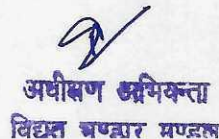 अधीक्षण अभियन्ता
विद्युत भण्डार मण्डल